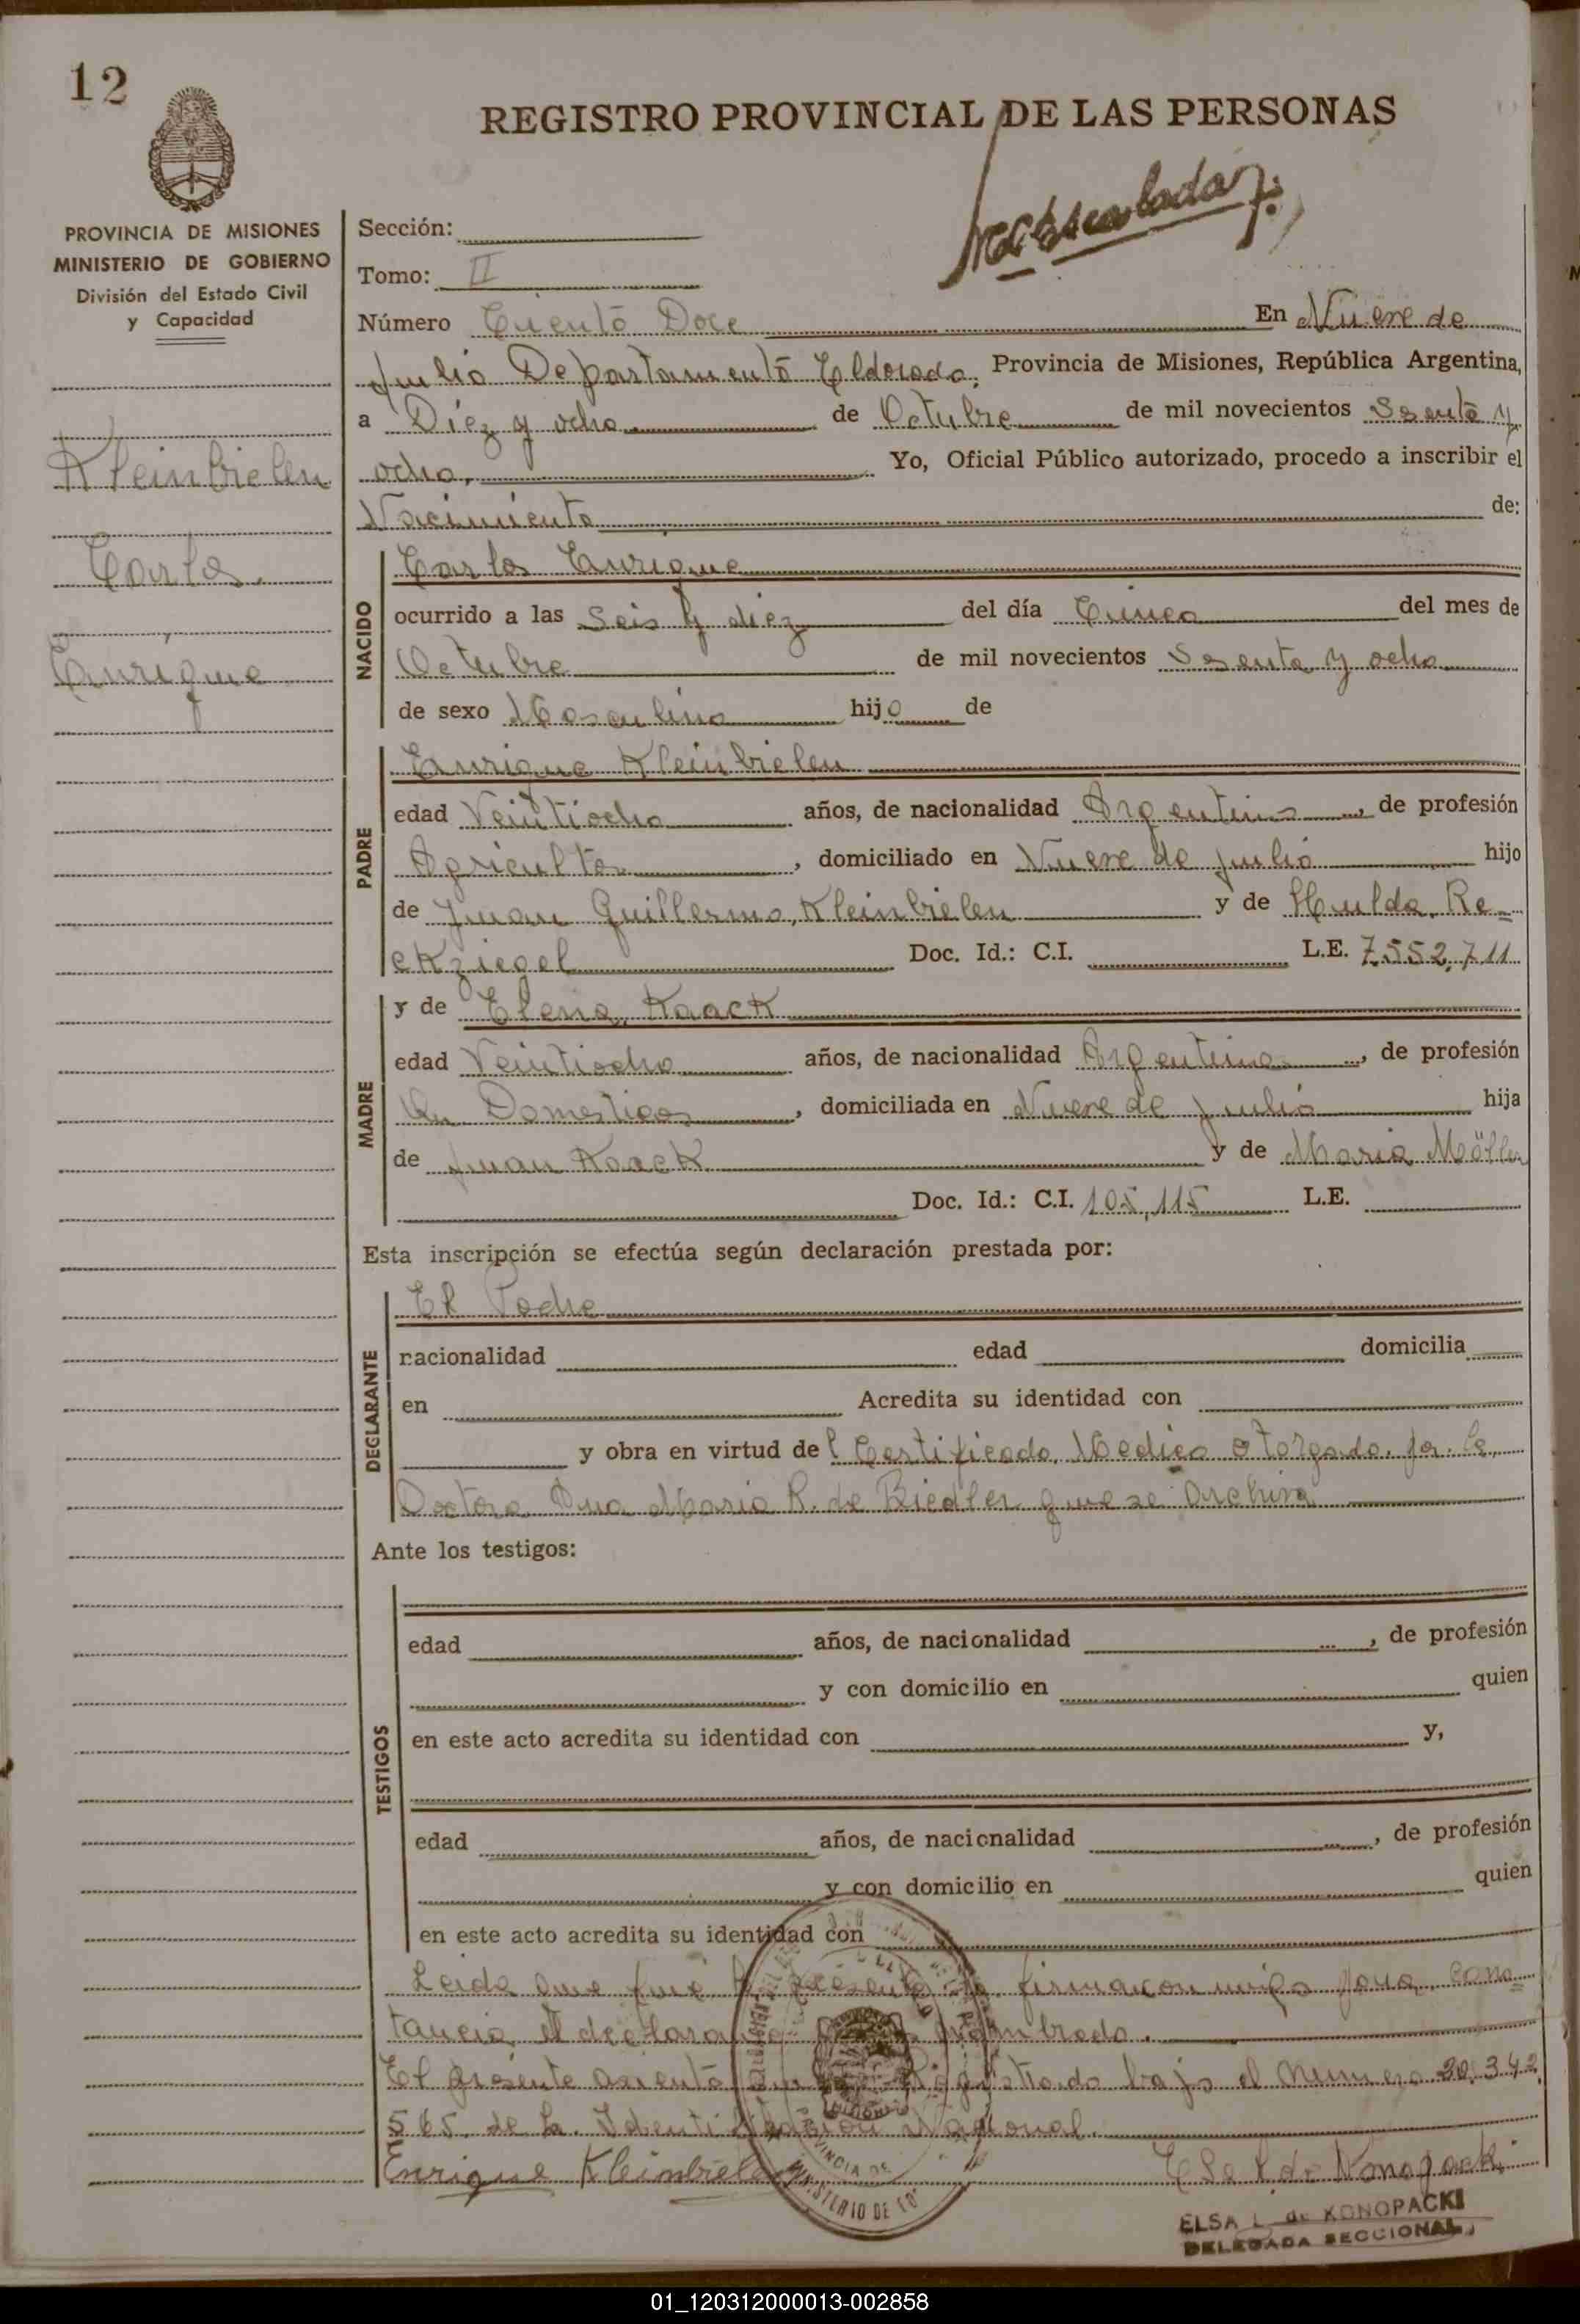 12
REGISTRO PROVINCIAL DE LAS PERSONAS
PROVINCIA DE MISIONES
MINISTERIO DE GOBIERNO
División del Estado Civil
y Capacidad
Kleinbielen
Carlos
Enrique
Sección:
Tomo: II
Número Ciento Doce En Nueve de
Julio Departamento Eldorado, Provincia de Misiones, República Argentina,
a Diez y ocho de Octubre de mil novecientos Sesenta y
ocho, Yo, Oficial Público autorizado, procedo a inscribir el
Nacimiento de:
NACIDO
Carlos Enrique
ocurrido a las Seis y diez del día Cinco del mes de
Octubre de mil novecientos Sesenta y ocho
de sexo Masculino hijo de
PADRE
Enrique Kleinbielen
edad Veintiocho años, de nacionalidad Argentino, de profesión
Agricultor, domiciliado en Nueve de Julio hijo
de Juan Guillermo Kleinbielen y de Hulda Re=
ckziegel Doc. Id.: C.I. L.E. 7.552.711
MADRE
y de Elena Kaack
edad Veintiocho años, de nacionalidad Argentina, de profesión
Domesticos, domiciliada en Nueve de Julio hija
de Juan Kaack y de Maria Möller
Doc. Id.: C.I. 105.115 L.E.
Esta inscripción se efectúa según declaración prestada por:
DECLARANTE
El Padre
nacionalidad edad domicilia
en Acredita su identidad con
y obra en virtud del Certificado Medico otorgado por la
Doctora Dña Maria R. de Riedler que se archiva
Ante los testigos:
TESTIGOS
edad años, de nacionalidad , de profesión
y con domicilio en quien
en este acto acredita su identidad con y,
edad años, de nacionalidad , de profesión
y con domicilio en quien
en este acto acredita su identidad con
Leida que fué la presente la firma conmigo para cons=
tancia el declarante nombrado.
El presente asiento Registrado bajo el numero 20.342.
565 de la Identificación Nacional.
Enrique Kleinbielen
ELSA L. de KONOPACKI
DELEGADA SECCIONAL
01_120312000013-002858